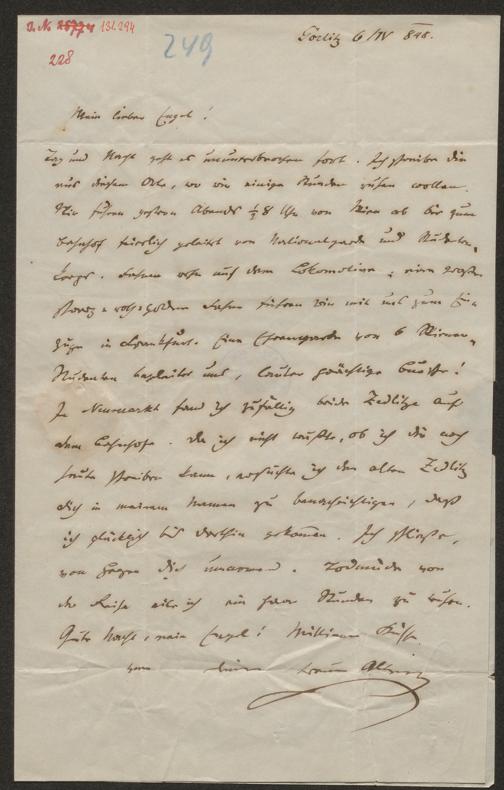 J. N. 26774 131.294
228
249
Görlitz 6/IV 848.
Mein lieber Engel!
Tag und Nacht geht es ununterbrochen fort. Ich schreibe dir
aus diesem Orte, wo wir einige Stunden ruhen wollen.
Wir fuhren gestern Abends ½8 Uhr von Wien ab bis zum
Bahnhof feierlich geleitet von Nationalgarde und Studenten-
Corps. Fahnen auf dem Lokomotive; eine große
schwarz-roth-goldene Fahne führen wir mit uns zum Ein-
zuge in Frankfurt. Eine Ehrengarde von 6 Wiener-
Studenten begleitet uns, lauter prächtige Bursche!
In Neumarkt fand ich zufällig beide Zedlitze auf
dem Bahnhofe. Da ich nicht wußte, ob ich dir noch
heute schreiben kann, ersuchte ich den alten Zedlitz
dich in meinem Namen zu benachrichtigen, daß
ich glücklich bis dorthin gekommen. Ich schließe,
von Herzen dich umarmend. Todmüde von
der Reise eile ich ein paar Stunden zu ruhen.
Gute Nacht, mein Engel! Millionen Küsse
von deinem treuen